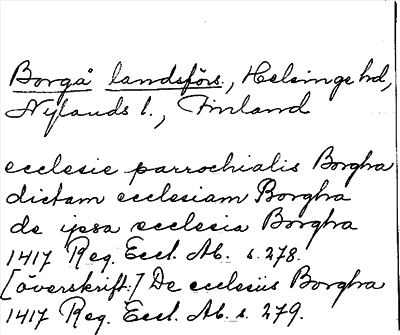 Borgå landsförs., Helsinge hd,
Nylands l., Finland
ecclesie parrochialis Borgha
dictam ecclesiam Borgha
de ipsa ecclesia Borgha
1417 Reg. Eccl. Ab. s. 278.
[överskrift:] De ecclesiis Borgha
1417 Reg. Eccl. Ab. s. 279.